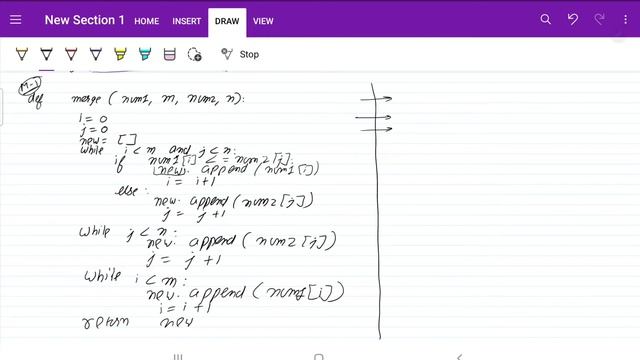 New Section 1 HOME INSERT DRAW VIEW
Stop
M-1
def merge ( num1, m, num2, n):
i = 0
j = 0
new = []
while i < m and j < n:
if num1[i] <= num2[j]:
new. append ( num1[i])
i = i+1
else:
new. append ( num2[j])
j = j+1
while j < n:
new. append ( num2[j])
j = j+1
while i < m:
new. append ( num1[i])
i = i+1
return new